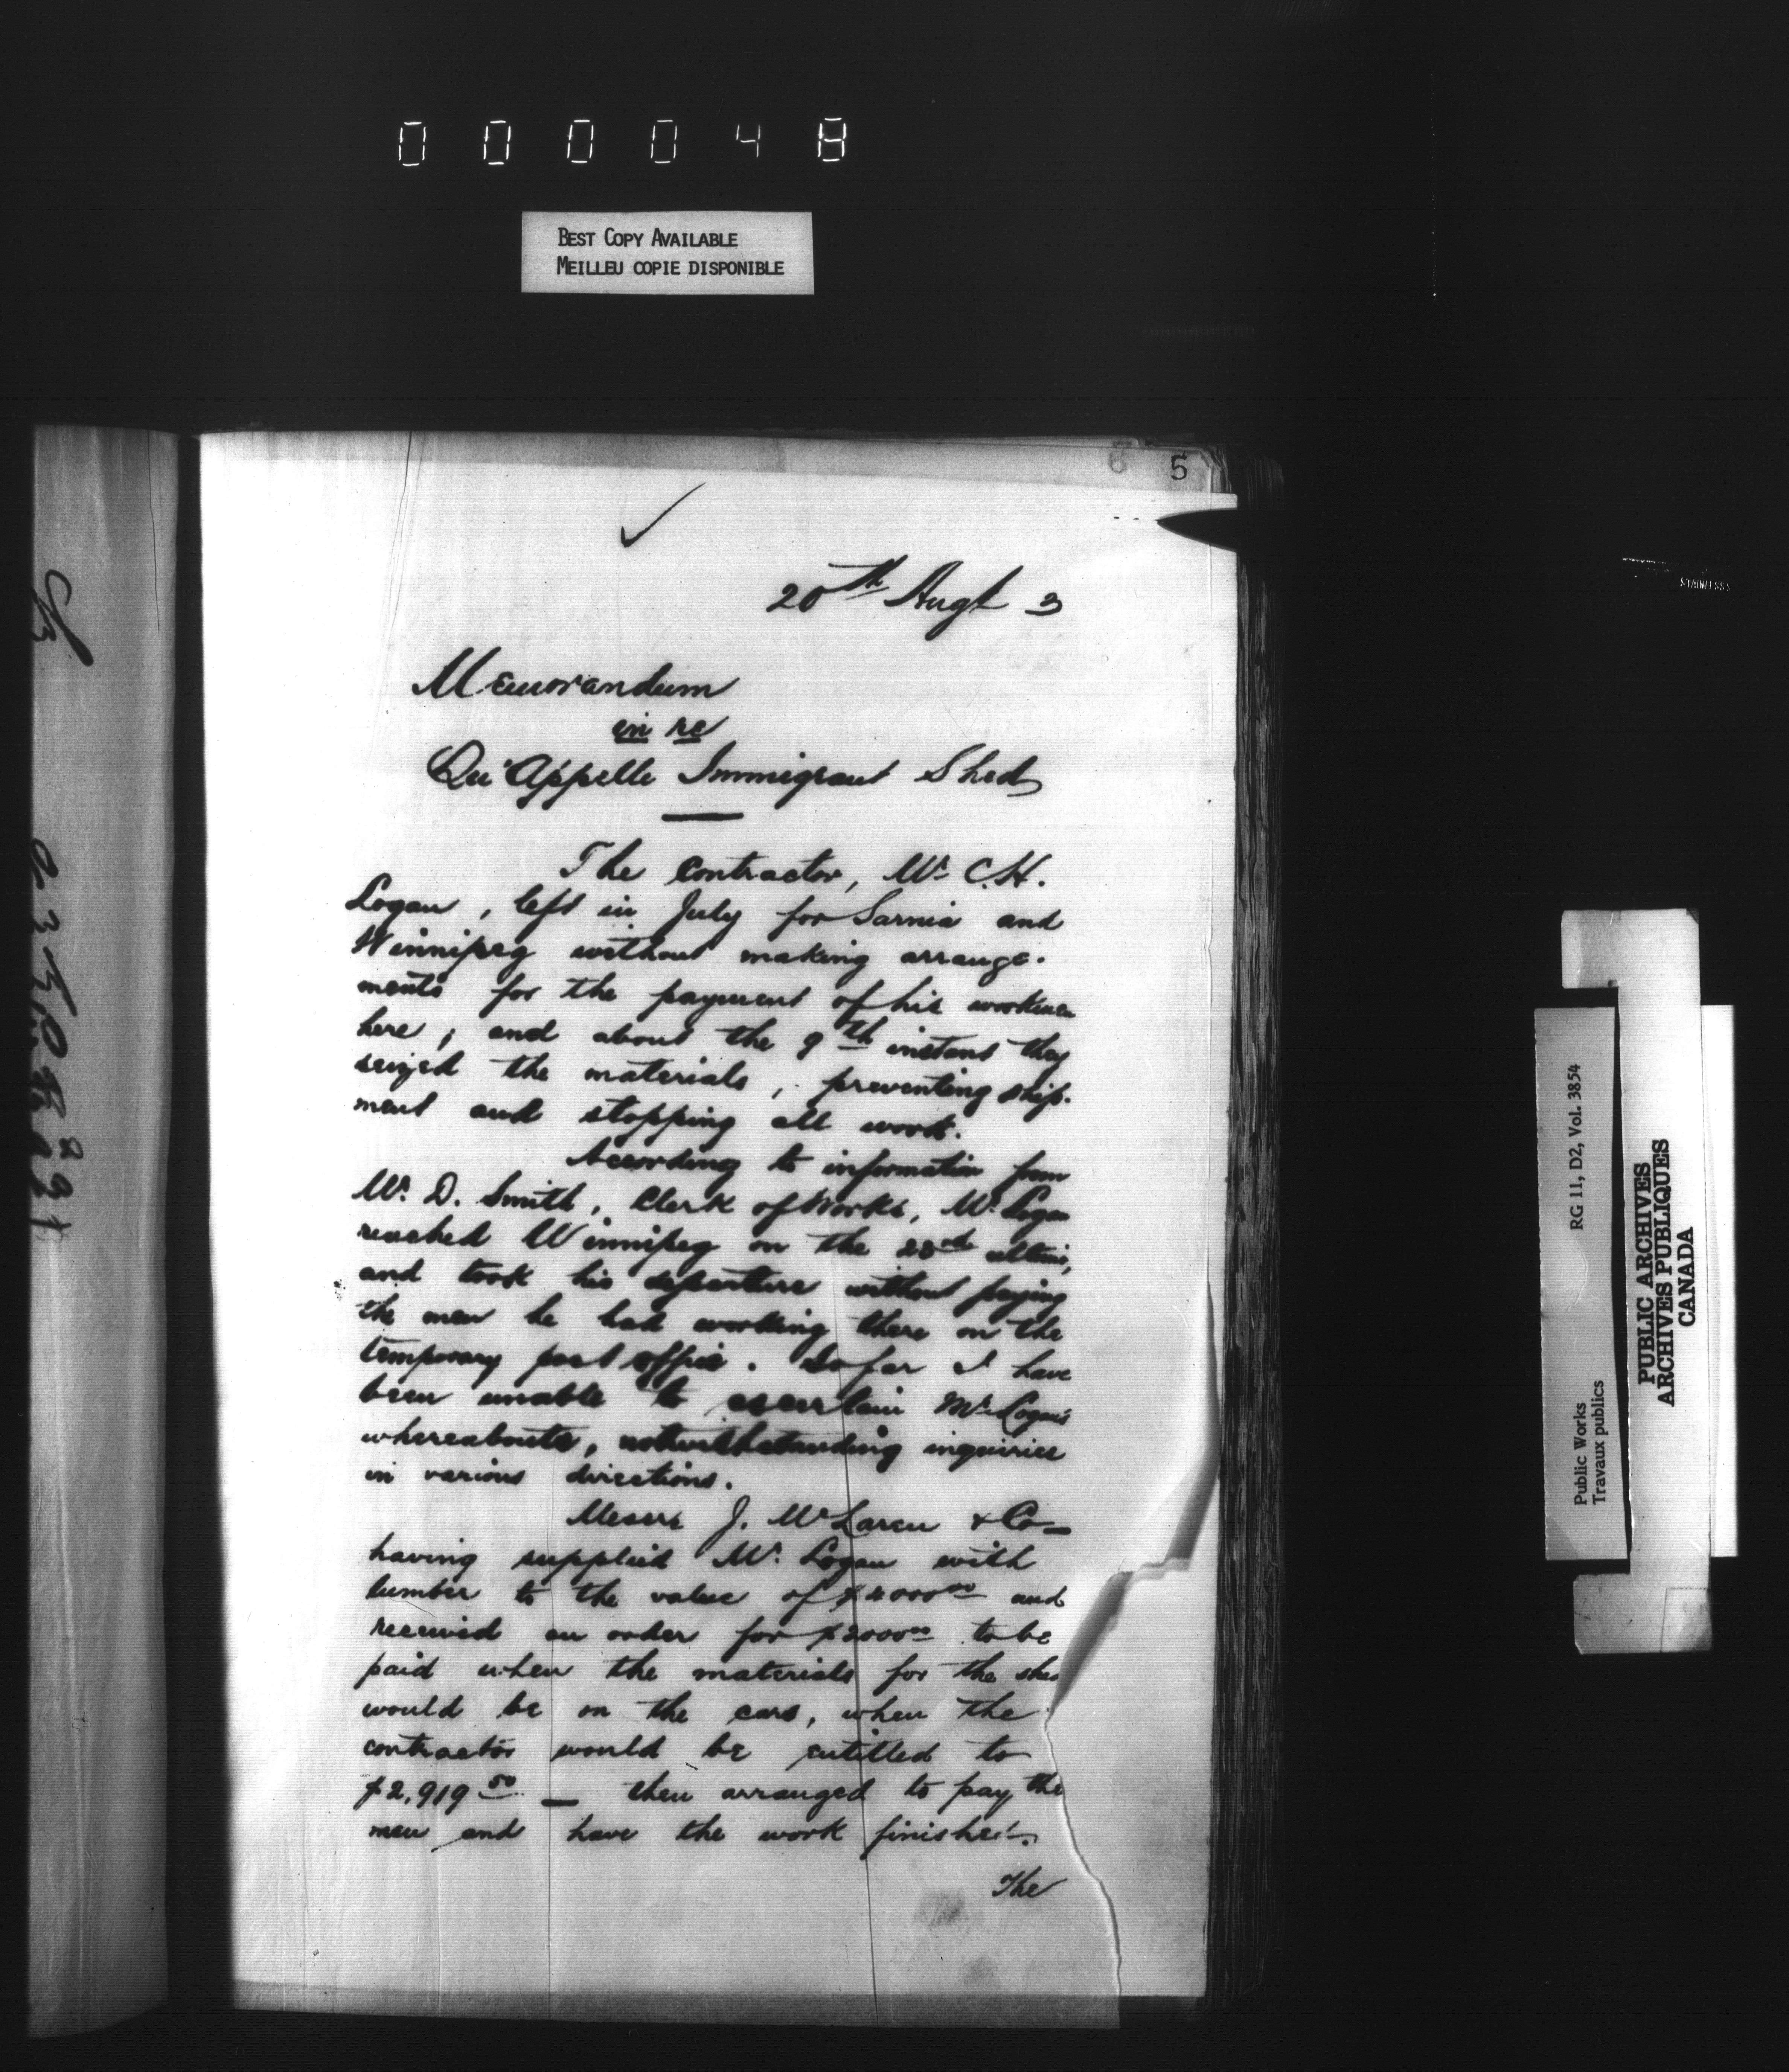 000048
BEST COPY AVAILABLE
MEILLEU COPIE DISPONIBLE
5
20th Augt 3
Memorandum
in re
Qu'Appelle Immigrant Shed
The contractor, Mr. C.H.
Logan, left in July for Sarnia and
Winnipeg without making arrange-
ments for the payment of his workmen
here; and about the 9th instant they
seized the materials, preventing ship-
ment and stopping all work.
According to information from
Mr. D. Smith, Clerk of Works, Mr. Logan
reached Winnipeg on the ultimo,
and took his departure without paying
the men he had working there on the
temporary post office. So far I have
been unable to ascertain Mr. Logan's
whereabouts, notwithstanding inquiries
in various directions.
Messrs J. McLaren & Co—
having supplied Mr. Logan with
lumber to the value of and
received an order for $2000.00 to be
paid when the materials for the shed
would be on the cars, when the
contractor would be entitled to
$2,919.50 — then arranged to pay the
men and have the work finished.
The
RG 11, D2, Vol. 3854
Public Works
Travaux publics
PUBLIC ARCHIVES
ARCHIVES PUBLIQUES
CANADA
STAINLESS